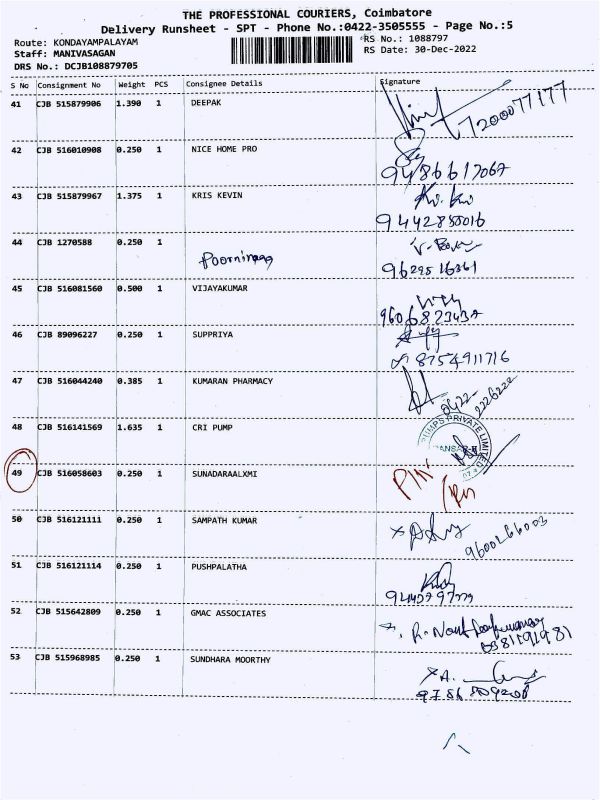 THE PROFESSIONAL COURIERS, Coimbatore
Delivery Runsheet - SPT - Phone No.:0422-3505555 - Page No.:5
Route: KONDAYAMPALAYAM
RS No.: 1088797
Staff: MANIVASAGAN
RS Date: 30-Dec-2022
DRS No.: DCJB108879705
S No Consignment No Weight PCS Consignee Details Signature
41 CJB 515879906 1.390 1 DEEPAK
7200077177
42 CJB 516010908 0.250 1 NICE HOME PRO
43 CJB 515879967 1.375 1 KRIS KEVIN
44 CJB 1270588 0.250 1
9629516361
45 CJB 516081560 0.500 1 VIJAYAKUMAR
46 CJB 89096227 0.250 1 SUPPRIYA
8754911716
47 CJB 516044240 0.385 1 KUMARAN PHARMACY
0422-2226222
48 CJB 516141569 1.635 1 CRI PUMP
PUMPS PRIVATE LIMITED
49 CJB 516058603 0.250 1 SUNADARAALXMI
50 CJB 516121111 0.250 1 SAMPATH KUMAR
9600266003
51 CJB 516121114 0.250 1 PUSHPALATHA
52 CJB 515642809 0.250 1 GMAC ASSOCIATES
53 CJB 515968985 0.250 1 SUNDHARA MOORTHY